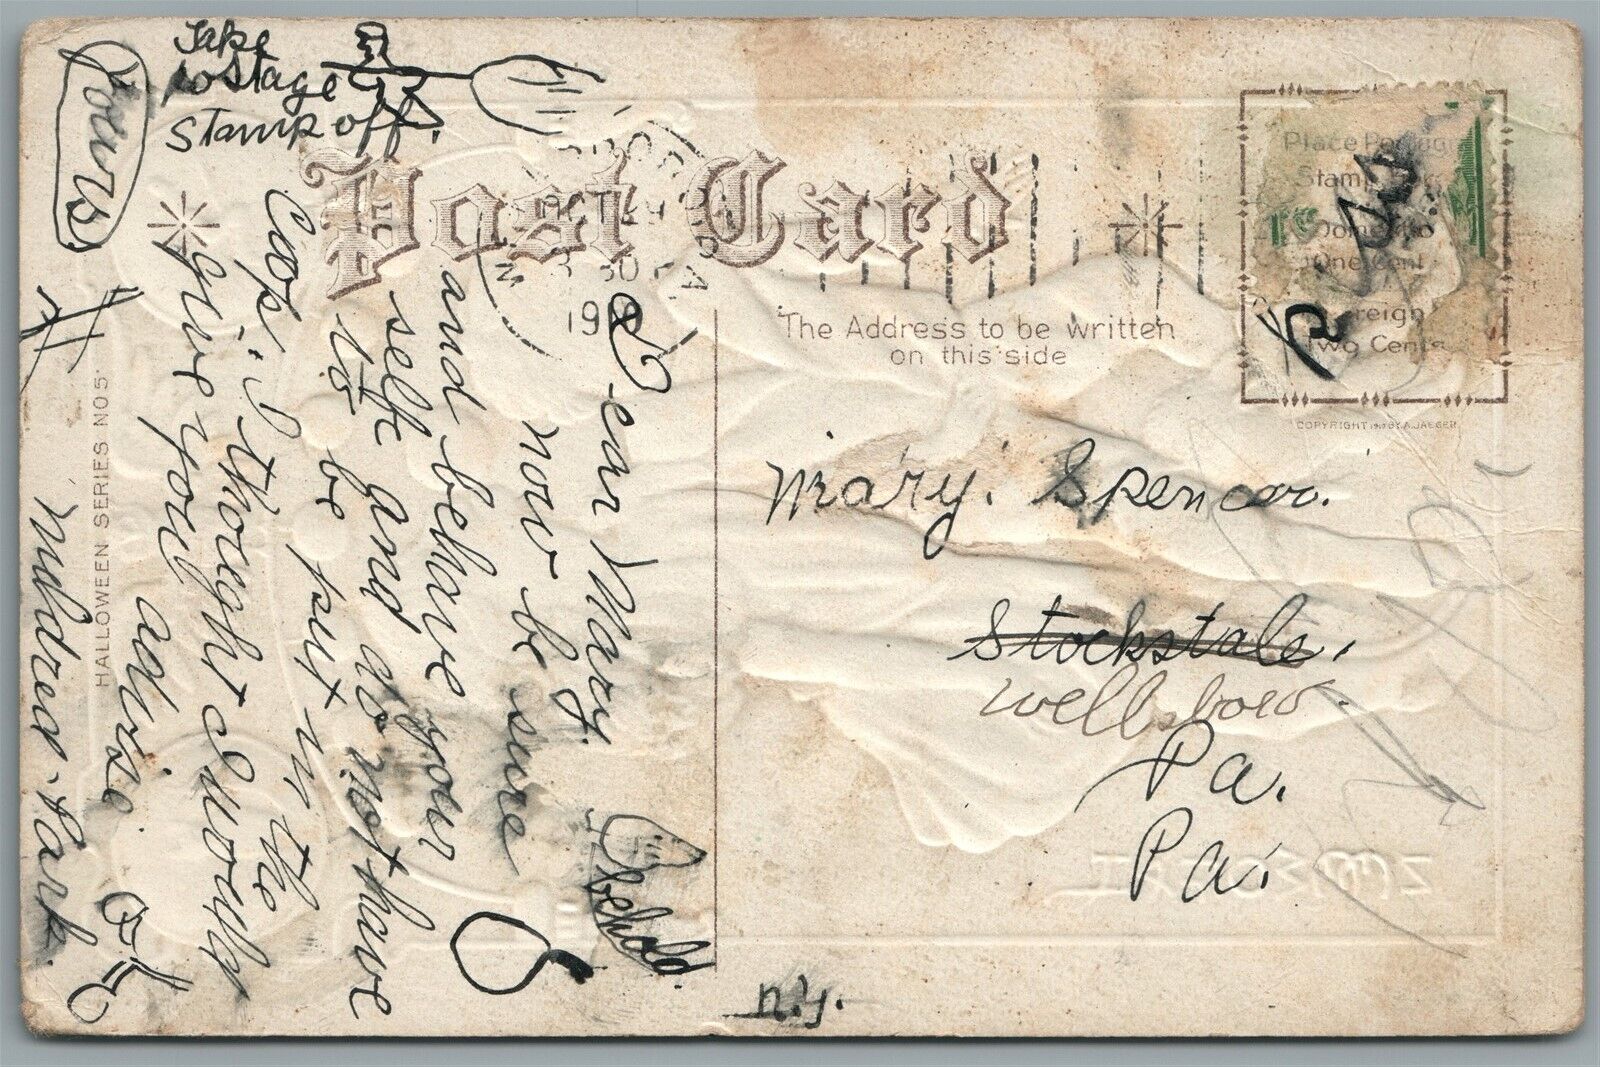 Take
postage
stamp off.
Post Card
The Address to be written
on this side
Place Postage
Stamp
Domestic
One Cent
Foreign
Two Cents
COPYRIGHT BY A. JAEGER
HALLOWEEN SERIES NO 5
Mary. Spencer.
Stockstale.
wellsboro.
Pa.
Pa.
n.y.
Dear Mary.
now be sure
and behave your
self and do not have
to be put in the
Coop. I thought I would
give you advise.
Yours
Mildred Park.
behold